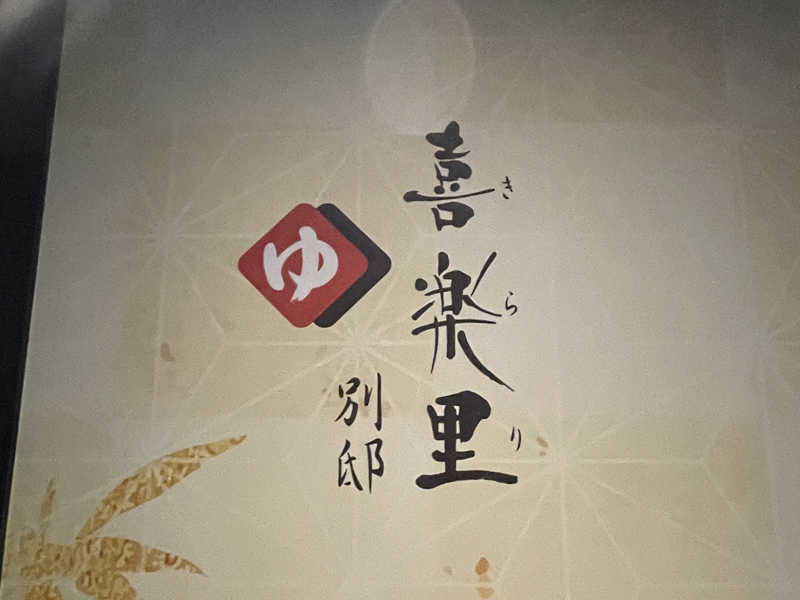 喜楽里
きらり
ゆ
別邸